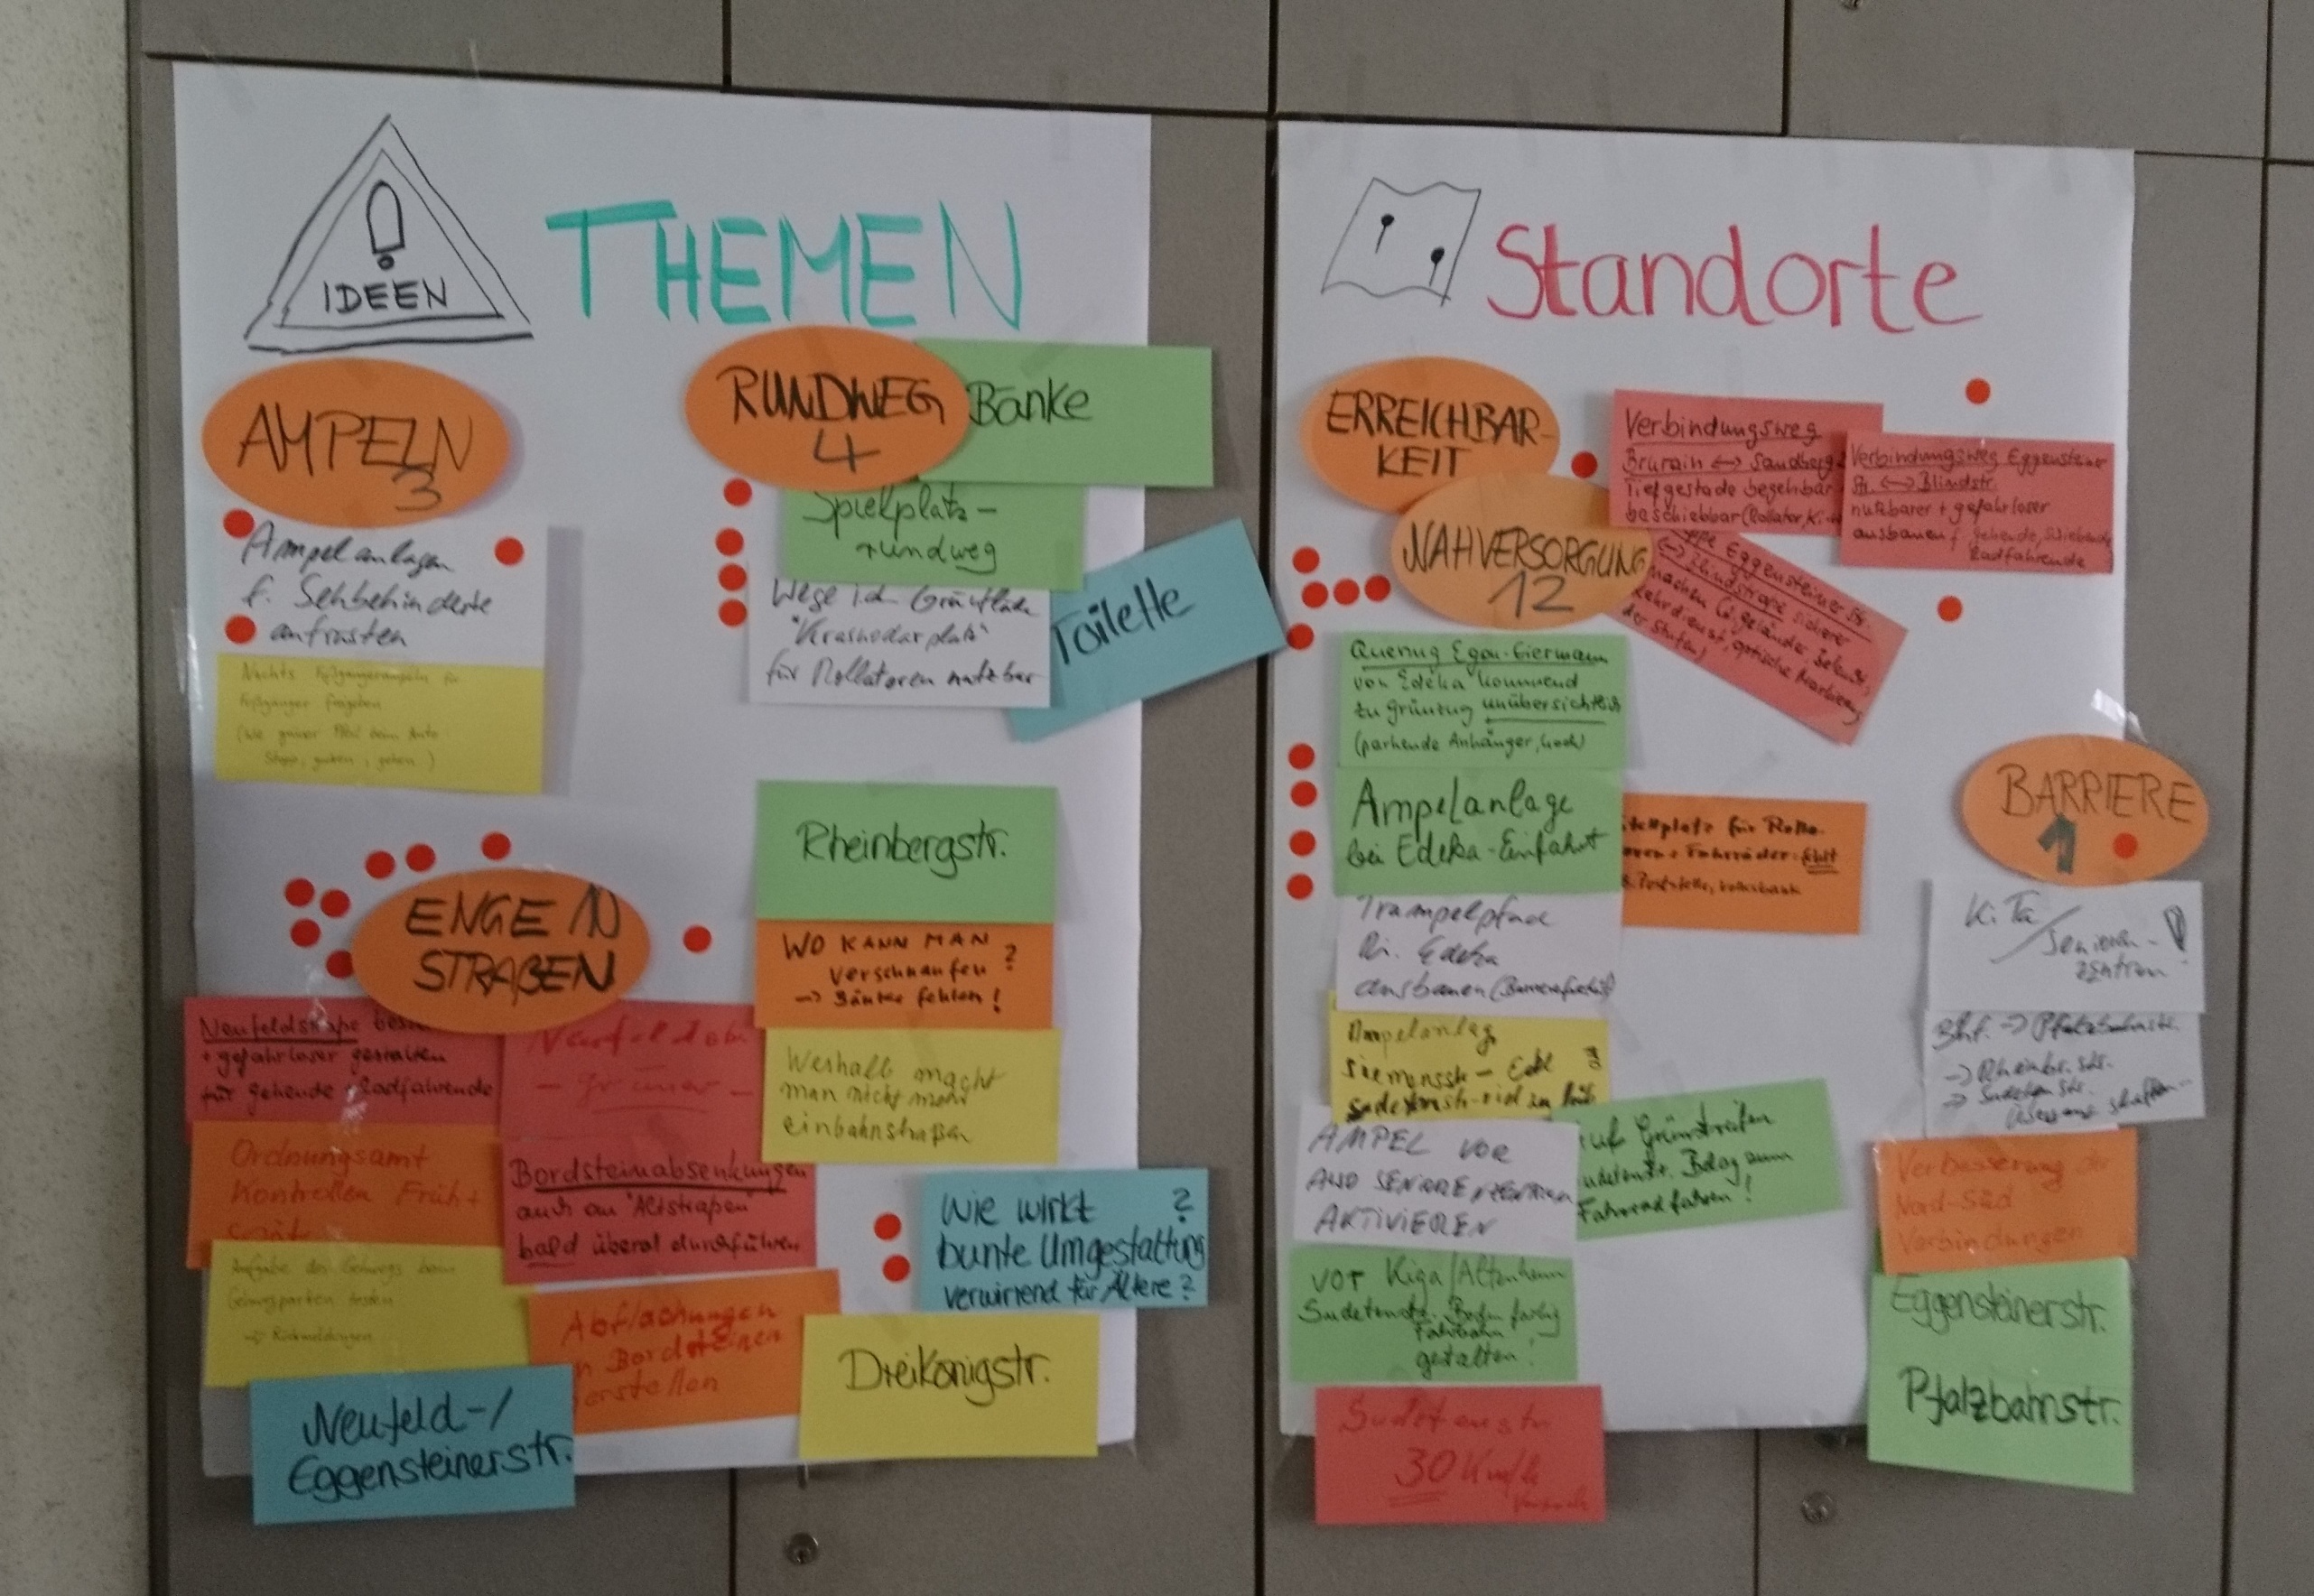 IDEEN
THEMEN
AMPELN
3
Ampelanlagen
f. Sehbehinderte
aufrüsten
Nachts Fußgängerampeln für
Fußgänger freigeben
(wie grüner Pfeil beim Auto
Stopp, gucken, gehen)
RUNDWEG
4
Bänke
Spielplatz-
rundweg
Wege i.d. Grünfläche
"Krasnodarplatz"
für Rollatoren nutzbar
Toilette
ENGE 10
STRAßEN
Neufeldstraße
+ gefahrloser gestalten
für gehende + Radfahrende
Neufeldstr.
- grüner -
Ordnungsamt
Kontrollen Früh +
Spät
Bordsteinabsenkungen
auch an "Altstraßen"
bald überal durchführen
Aufgabe des Gehwegs beim
Gehwegparken testen
-> Rückmeldungen
Abflachungen
Bordsteinen
erstellen
Neufeld-/
Eggensteinerstr.
Rheinbergstr.
WO KANN MAN
verschnaufen ?
-> Bänke fehlen!
Weshalb macht
man nicht mehr
einbahnstraßen
Wie wirkt ?
bunte Umgestaltung
verwirrend für Ältere?
Dreikönigstr.
Standorte
ERREICHBAR-
KEIT
NAHVERSORGUNG
12
Verbindungsweg
Brurain <-> Sandberg
Tiefgestade begehbar
beschiebbar (Rollator, Ki
Verbindungsweg Eggensteiner
Str. <-> Blindstr.
nutzbarer + gefahrloser
ausbauen f. gehende, schiebende,
Radfahrende
Eggensteiner Str.
<-> Blindstraße sicherer
machen (Geländer, Beleucht,
Kehrdienst, optische Markierung
der Stufen)
Querung Egon-Eiermann
von Edeka kommend
zu Grünzug unübersichtlich
(parkende Anhänger,
Ampelanlage
bei Edeka-Einfahrt
Stellplatz für Rolla-
toren + Fahrräder fehlt
Poststelle, Volksbank
Trampelpfad
Edeka
ausbauen (Barrierefreiheit)
Ampelanlag
Siemensstr - Ecke
Sudetenstr
AMPEL VOR
AWO SENIORENZENTRUM
AKTIVIEREN
auf Grünstreifen
Sudetenstr. Belag zum
Fahrradfahren!
vor Kiga/Altenheim
Sudetenstr. Boden farbig
Fahrbahn
gestalten!
Sudetenstr.
30 Km/h
BARRIERE
1
KiTa/
Senioren-
zentrum !
Bhf. -> Pfalzbahnstr.
-> Rheinbr. str.
-> Sudetenstr.
Verbesserung der
Nord-Süd
Verbindungen
Eggensteinerstr.
Pfalzbahnstr.